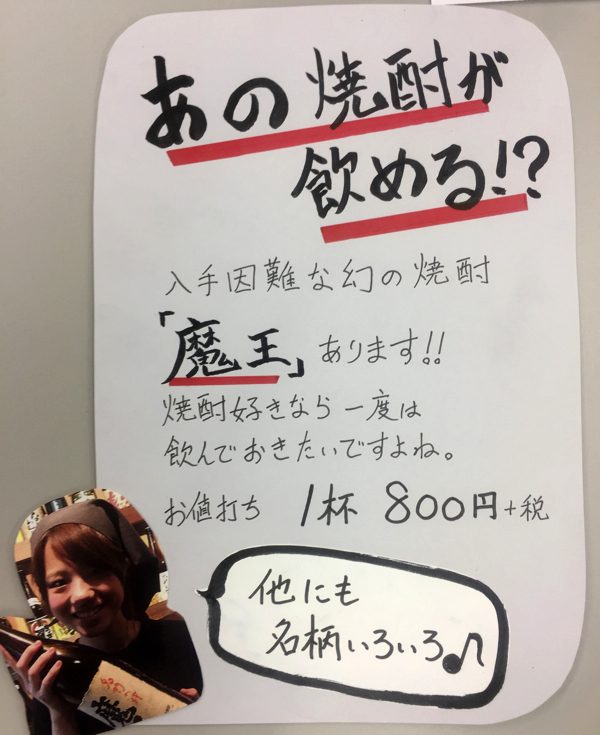 あの焼酎が
飲める!?
入手因難な幻の焼酎
「魔王」あります!!
焼酎好きなら一度は
飲んでおきたいですよね。
お値打ち 1杯 800円+税
他にも
名柄いろいろ♪